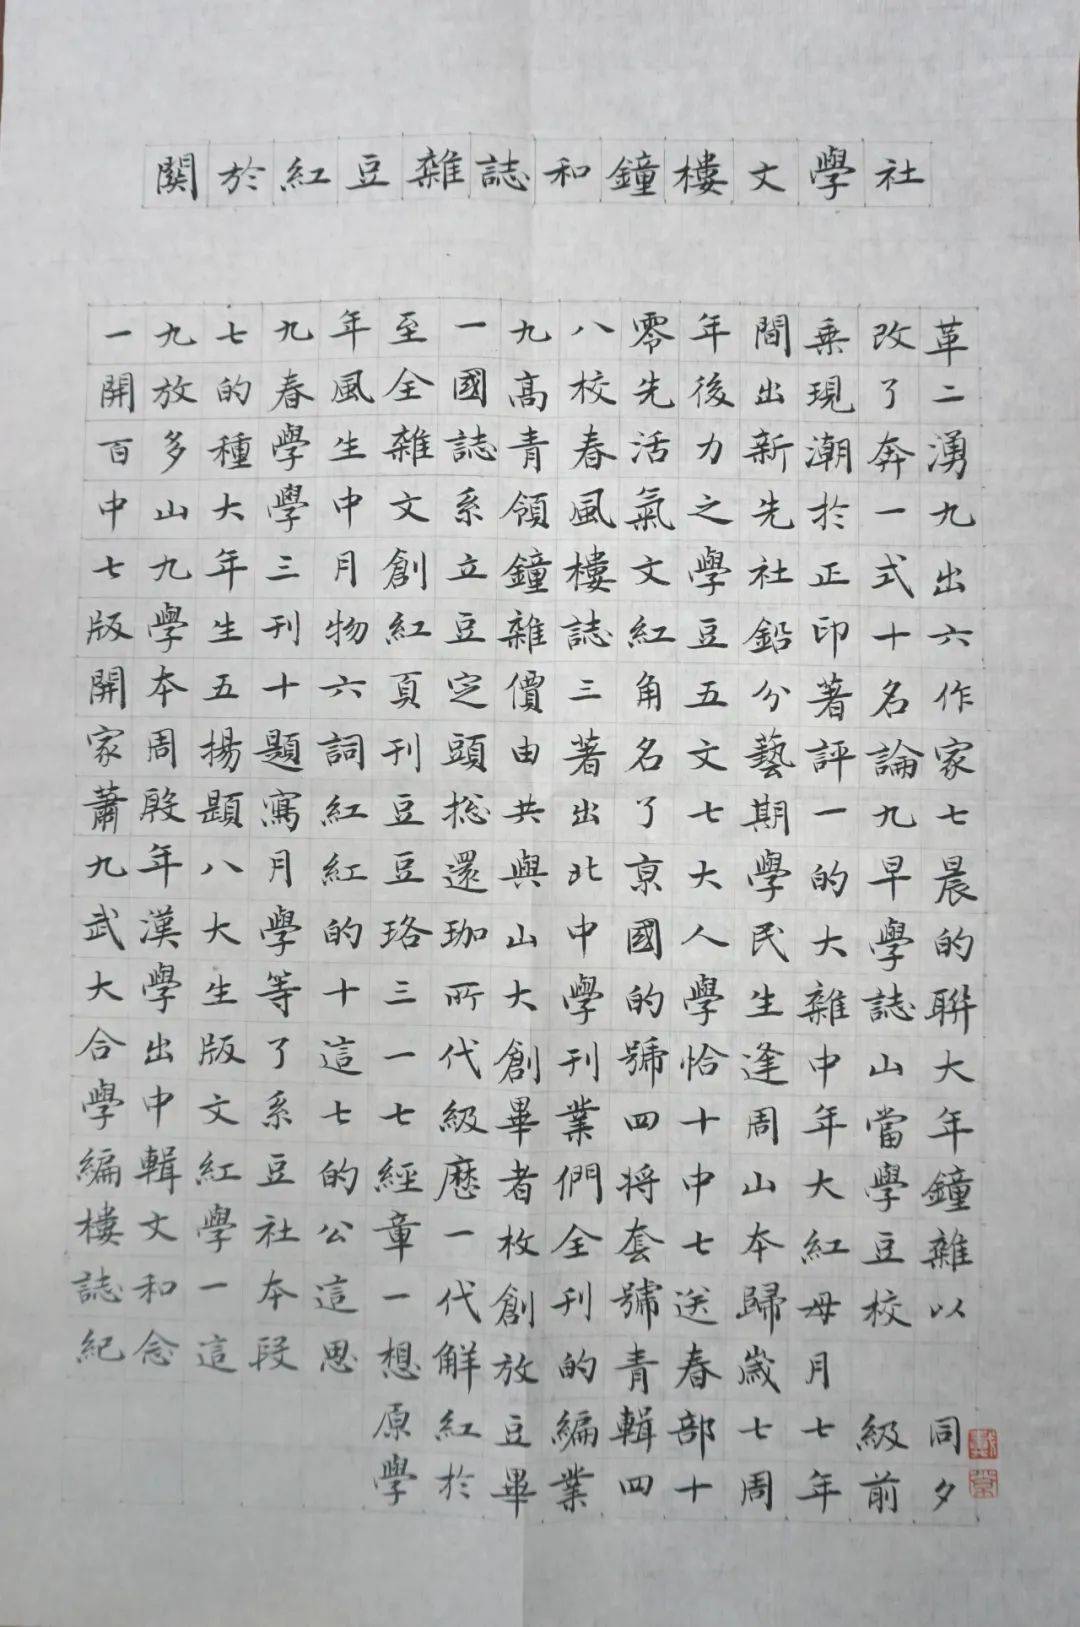 關於紅豆雜誌和鐘樓文學社
一九七九年至一九八零年間乘改革
開放的春風全國高校先後出現了二
百多種學生雜誌青春活力新潮奔湧
中山大學中文系領風氣之先於一九
七九年三月創立鐘樓文學社正式出
版學生刊物紅豆雜誌紅豆鉛印十六
開本五十六頁定價三角五分著名作
家周揚題詞刊頭由著名文藝評論家
蕭殷題寫紅豆捴共出了七期一九七
九年八月紅豆還與北亰大學的早晨
武漢大學的珞珈山中國人民大學的
大學生等十三所大學的學生雜誌聯
合出版了這一代創刊號恰逢中山大
學中文系七七級畢業四十周年當年
編輯紅豆的經歷者們將中山大學鐘
樓文學社公章一枚全套七本紅豆雜
誌和一本這一代創刊號送歸母校以
紀念這段思想解放的青春歲月
原紅豆編輯部七七級同
學於畢業四十周年前夕